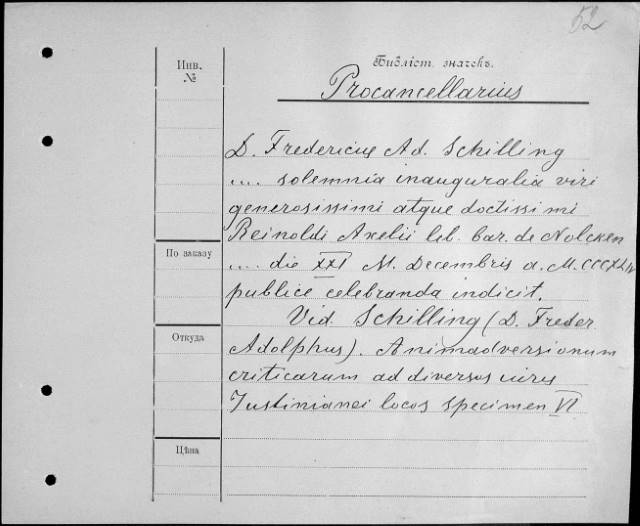 52
Инв.
№
Библіот. значекъ.
Procancellarius
D. Fredericus Ad. Schilling
.... solemnia inauguralia viri
generosissimi atque doctissimi
Reinoldi Axelii lib. bar. de Nolcken
По заказу
.... die XXI M. Decembris a. M.CCCXLIV
publice celebranda indicit.
Vid. Schilling (D. Freder.
Откуда
Adolphus). Animadversionum
criticarum ad diversos iuris
Justinianei locos specimen VI
Цѣна